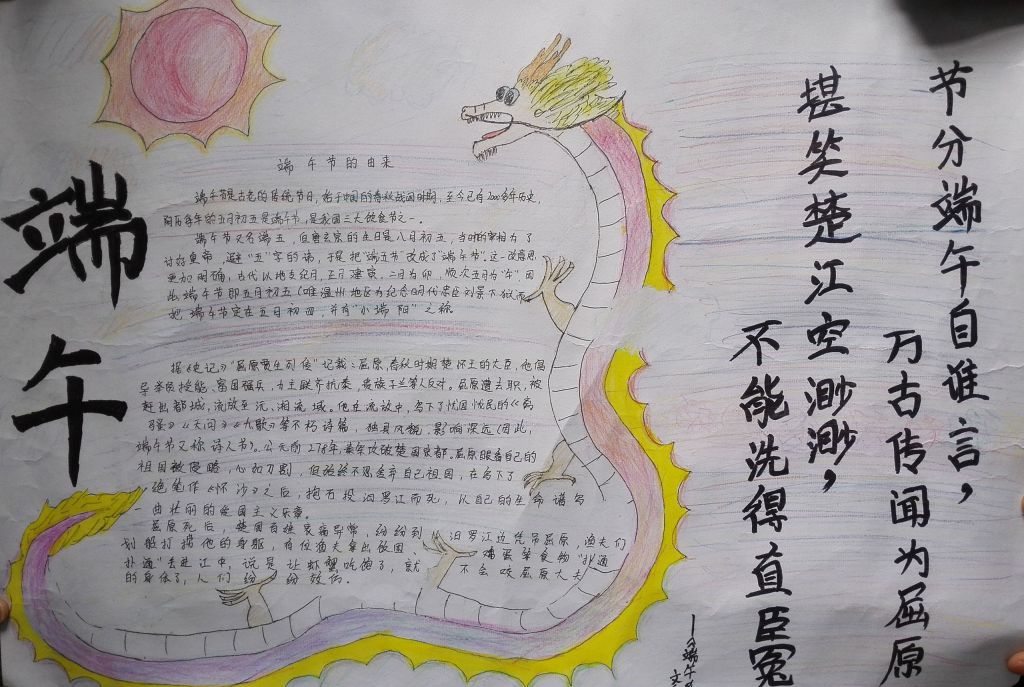 端午
端午节的由来
端午节是古老的传统节日，始于中国的春秋战国时期，至今已有2000多年历史，
阴历每年的五月初五是端午节，是我国三大传食节之一。
端午节又名端五，但唐玄宗的生日是八月初五，当时的宰相为了
讨好皇帝，避“五”字的讳，于是把“端五节”改成了“端午节”。这一改意思
更加明确，古代以地支纪月，正月建寅，二月为卯，顺次五月为“午”，因
此端午节即五月初五（唯温州地区为纪念明代忠臣刘景下狱而
把端午节定在五月初四，并有“小端阳”之称
据《史记》“屈原贾生列传”记载：屈原，春秋时期楚怀王的大臣，他倡
导举贤授能，富国强兵，力主联齐抗秦，贵族子兰等人反对。屈原遭去职，被
赶出都城，流放至沅、湘流域。他在流放中，写下了忧国忧民的《离
骚》《天问》《九歌》等不朽诗篇，独具风貌，影响深远（因此，
端午节又称诗人节）。公元前278年，秦军攻破楚国京都。屈原眼看自己的
祖国被侵略，心如刀割，但始终不忍舍弃自己祖国，在写下了
绝笔作《怀沙》之后，抱石投汨罗江而死，以自己的生命谱写
曲壮丽的爱国主义乐章。
屈原死后，楚国百姓哀痛异常，纷纷到汨罗江边凭吊屈原，渔夫们
划船打捞他的身躯，有位渔夫拿出饭团、鸡蛋等食物“扑通
扑通”丢进江中，说是让虾蟹吃饱了，就不会咬屈原大夫
的身体了，人们纷纷效仿。
节分端午自谁言，
万古传闻为屈原
堪笑楚江空渺渺，
不能洗得直臣冤
端午
文